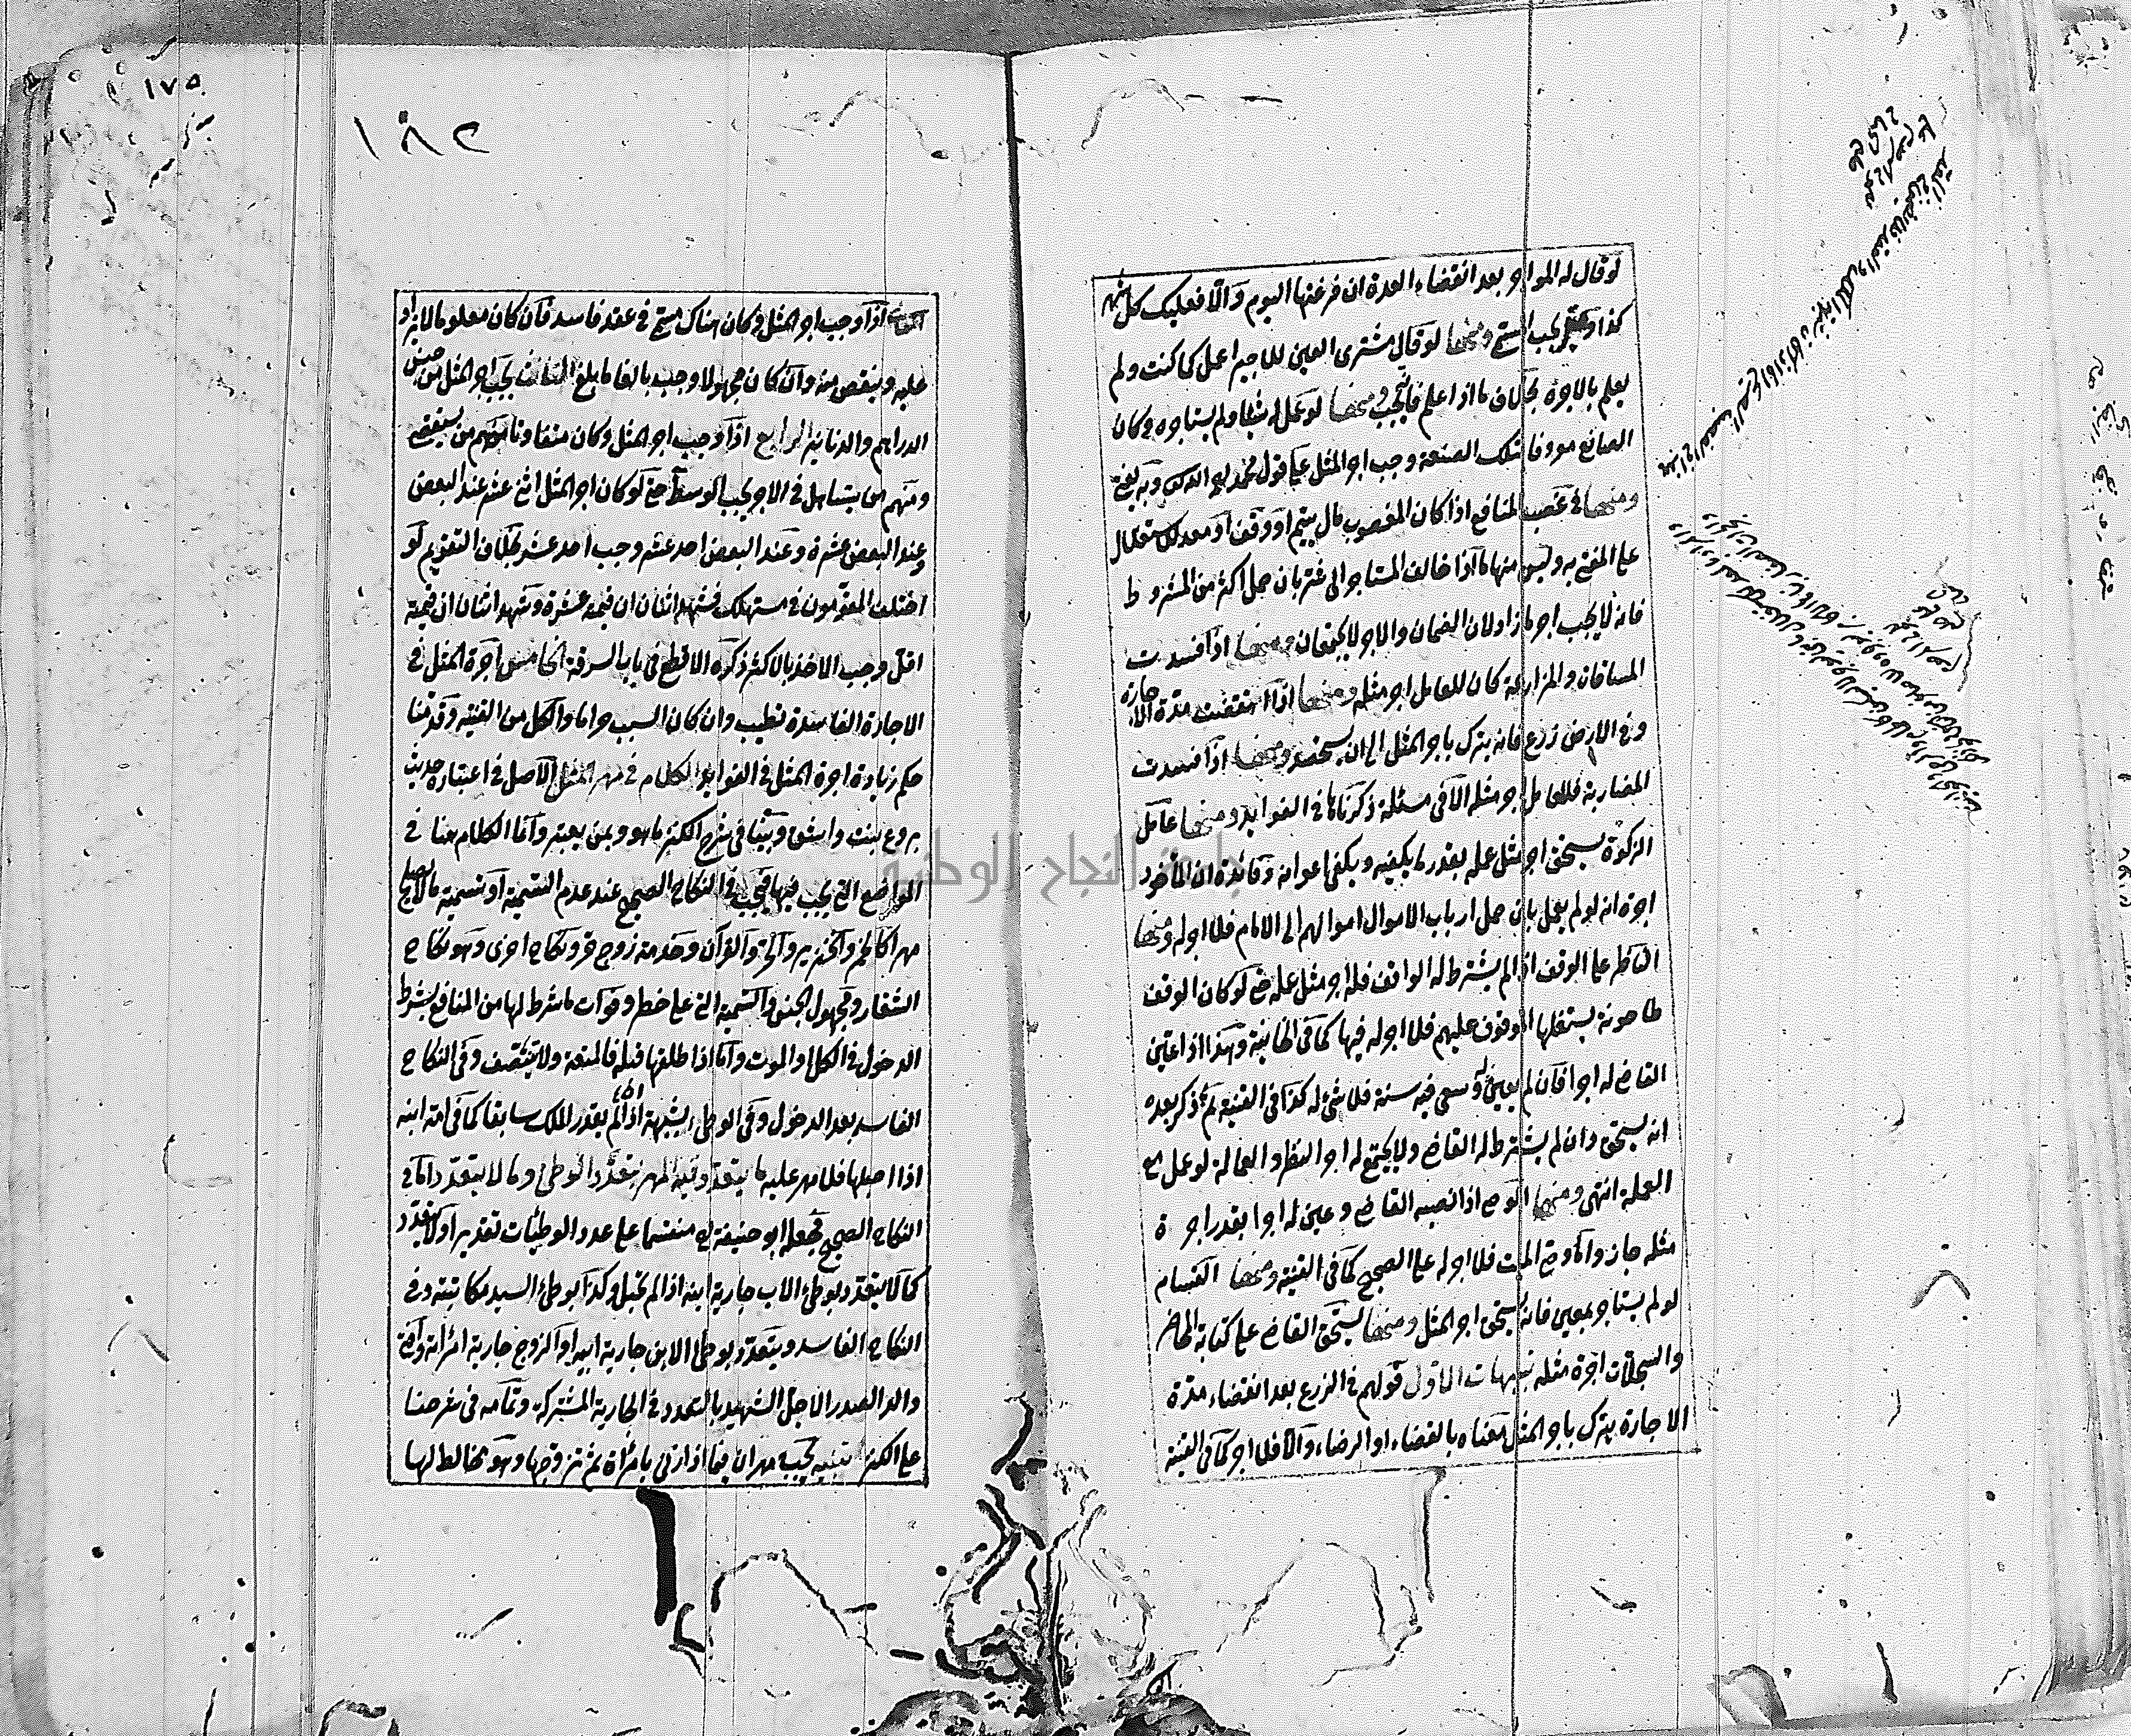 لو قال له المواجر بعد انقضاء المدة ان فرغتها اليوم والا فعليك كل شهر
كذا وقيل يجب المسمى ومنها لو قال مشترى العين للاجير اعمل كما كنت ولم
يعلم بالاجرة بخلاف ما اذا علم فانه يجب ومنها لو عمل له شيئا ولم يستاجره وكان
الصانع معروفا بتلك الصنعة وجب اجر المثل على قول محمد رحمه الله وبه يفتى
ومنها فى غصب المنافع اذا كان المغصوب مال يتيم او وقف او معد للاستغلال
على المفتى به وليس منها ما اذا خالف المستاجر الى شر بان حمل اكثر من المشروط
فانه لا يجب اجر ما زاد لان الضمان والاجر لا يجتمعان ومنها اذا فسدت
المساقات والمزارعة كان للعامل اجر مثله ومنها اذا انقضت مدة الاجارة
وفى الارض زرع فانه يترك باجر المثل الى ان يستحصد ومنها اذا فسدت
المضاربة فللعامل اجر مثله الا فى مسئلة ذكرناها فى الفوائد ومنها عامل
الزكوة يستحق اجر مثل عمله بقدر ما يكفيه ويكفى اعوانه وفائدة ان الماخوذ
اجرة انه لو لم يعمل بان حمل ارباب الاموال اموالهم الى الامام فلا اجر له ومنها
الناظر على الوقف اذا لم يشترط له الواقف فله اجر مثل عمله حتى لو كان الوقف
طاحونة يستغلها الموقوف عليهم فلا اجر له فيها كما فى الخانية وهذا اذا عين
القاضى له اجرا فان لم يعين له وسعى فيه سنة فلا شئ له كذا فى القنية ثم ذكر بعده
انه يستحق وان لم يشترط له القاضى ولا يجتمع له اجر النظر والعمالة لو عمل مع
العملة انتهى ومنها الوصى اذا نصبه القاضى وعين له اجرا بقدر اجرة
مثله جاز واما وصى الميت فلا اجر له على الصحيح كما فى القنية ومنها القسام
لو لم يستاجر بمعين فانه يستحق اجر المثل ومنها يستحق القاضى على كتابة المحاضر
والسجلات اجرة مثله تنبيهات الاول قولهم فى الزرع بعد انقضاء مدة
الاجارة يترك باجر المثل معناه بالقضاء او الرضاء والا فلا اجر كما فى القنية
١٧٥
١٨٢
اذا وجب اجر المثل وكان هناك مسمى فى عقد فاسد فان كان معلوما لا يزاد
عليه وينقص منه وان كان مجهولا وجب بالغا ما بلغ الثالث يجب اجر المثل من جنس
الدراهم والدنانير الرابع اذا وجب اجر المثل وكان متفاوتا منهم من يستقصى
ومنهم من يتساهل فى الاجر يجب الوسط حتى لو كان اجر المثل اثنى عشر عند البعض
وعند البعض عشرة وعند البعض احد عشر وجب احد عشر بخلاف التقويم لو
اختلف المقومون فى مستهلك فشهد اثنان ان قيمته عشرة وشهد اثنان ان قيمته
اقل وجب الاخذ بالاكثر ذكره الاقطع فى باب السرقة الخامس اجرة المثل فى
الاجارة الفاسدة تطيب وان كان السبب حراما والكل من القنية وقدمنا
حكم زيادة اجرة المثل فى الفوائد الكلام فى مهر المثل الاصل فى اعتباره حديث
بروع بنت واشق وبينا فى شرح الكنز ما هو وبمن يعتبر وانما الكلام هنا فى
المواضع التى يجب فيها فيجب فى النكاح الصحيح عند عدم التسمية او تسمية ما لا يصلح
مهرا كالخمر والخنزير والحر والقران وخدمة زوج حر ونكاح اخرى وهو نكاح
الشغار ومجهول الجنس والتسمية التى على خطر وفوات ما شرط لها من المنافع بشرط
الدخول فى الكل او الموت واما اذا طلقها قبله فالمتعة ولا يتنصف وفى النكاح
الفاسد بعد الدخول وفى الوطئ بشبهة اذا لم يقدر الملك سابقا كما فى امة ابنه
اذا احبلها فلا مهر عليه ما يتعدد فيه المهر بتعدد الوطئ وما لا يتعدد اما فى
النكاح الصحيح فجعله ابو حنيفة رح منقسما على عدد الوطئات تقديرا ولا يتعدد
كما لا يتعدد بوطئ الاب جارية ابنه اذا لم تحبل وكذا بوطئ السيد مكاتبته وفى
النكاح الفاسد ويتعدد بوطئ الابن جارية ابيه او الزوج جارية امراته وافتى
والد الصدر الاجل الشهيد بالتعدد فى الجارية المشتركة وتمامه فى شرحنا
على الكنز تنبيه يجب مهران فيما اذا زنى بامراة ثم تزوجها وهو مخالط لها